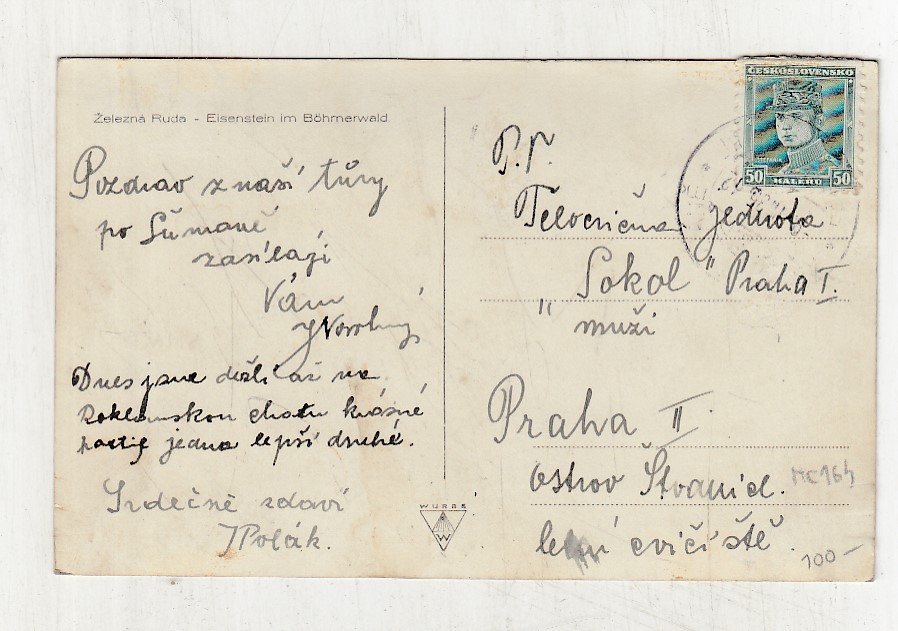 Železná Ruda - Eisenstein im Böhmerwald.
Pozdrav z naší tůry
po Šumavě
zasílají
Vám
JNovotný
Dnes jsme došli až na
Roklanskou chatu krásné
partie jedna lepší druhé.
Srdečně zdraví
JPolák.
WURBE
W
ČESKOSLOVENSKO
ŠTEFÁNIK
50 HALÉŘŮ 50
P.T.
Tělocvičná jednota
„Sokol" Praha I.
muži
Praha II.
Ostrov Štvanice.
letní cvičiště.
MC164
100-